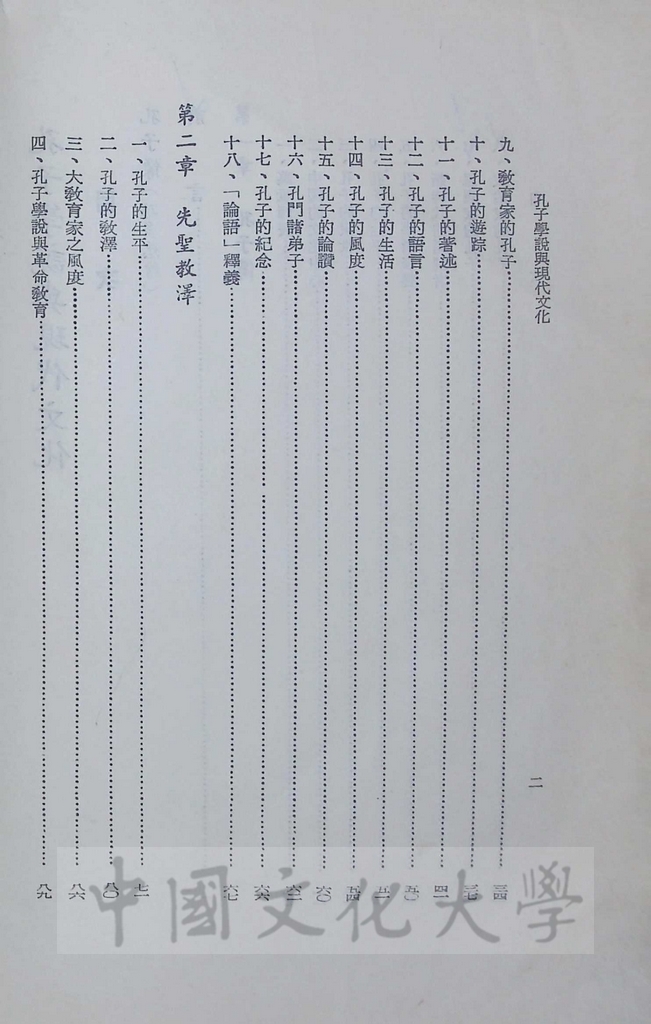 孔子學說與現代文化
二
九、教育家的孔子……三四
十、孔子的遊踪……三七
十一、孔子的著述……四一
十二、孔子的語言……五〇
十三、孔子的生活……五二
十四、孔子的風度……五四
十五、孔子的論讚……六〇
十六、孔門諸弟子……六二
十七、孔子的紀念……六六
十八、「論語」釋義……六七
第二章 先聖教澤
一、孔子的生平……七二
二、孔子的教澤……八〇
三、大教育家之風度……八六
四、孔子學說與革命教育……八九
中國文化大學